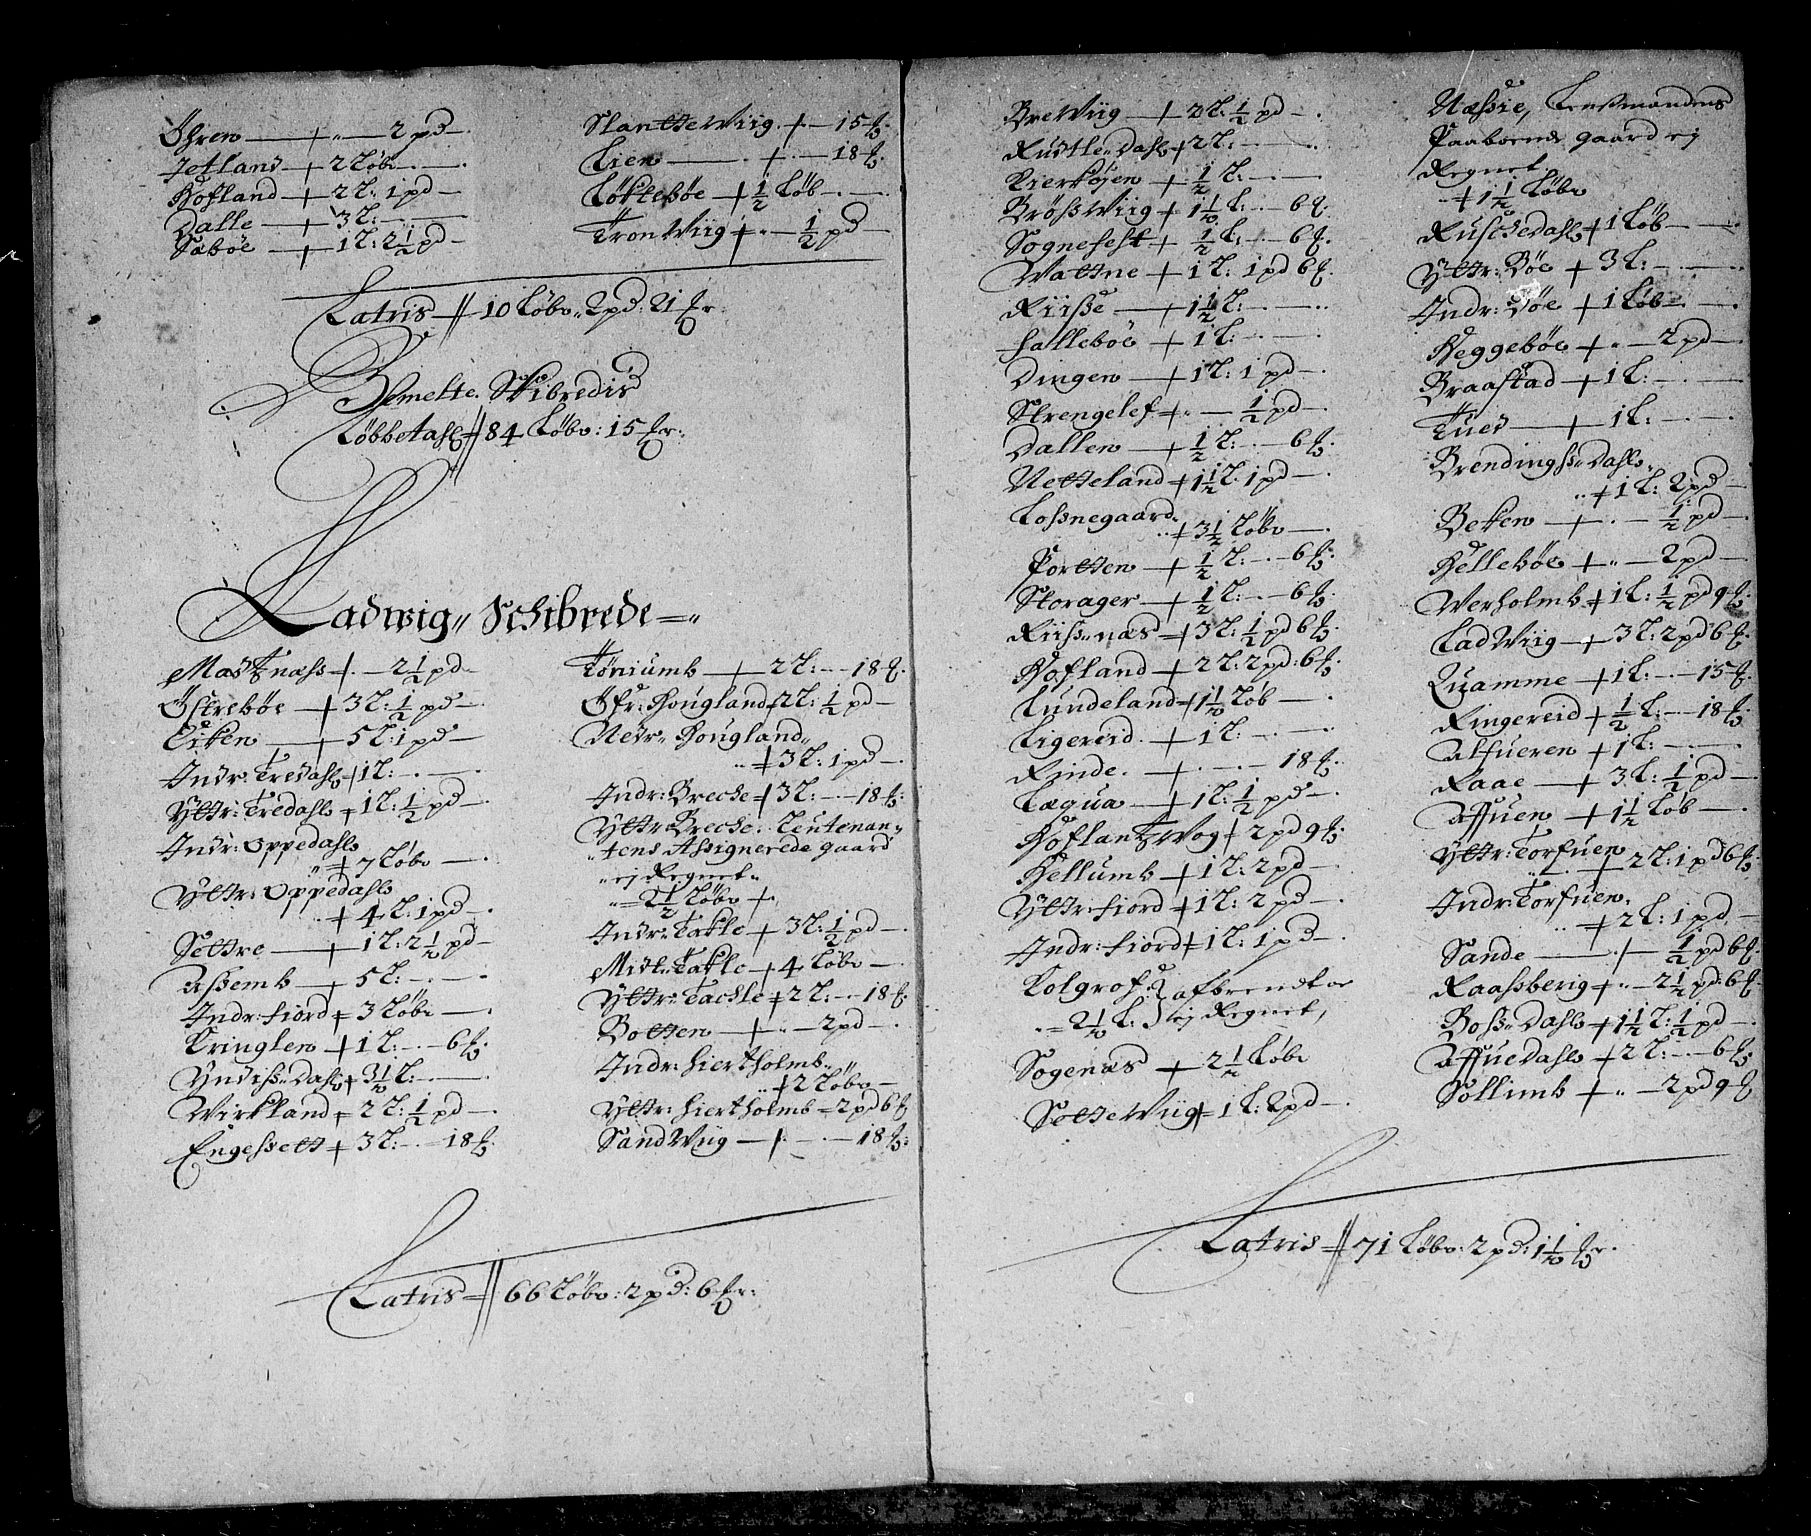 Öhren + „ — 2 pd —
Jetland + 2 Løbe — —
Hofland + 2 L: 1 pd —
Dalle + 3 L: — —
Sæbøe + 1 L: 2 1/2 pd —
SlantteWiig + — 15 
Lien — + — 18 
Løktebøe + 1/2 Løb — —
TronWiig + „ — 1/2 pd —
Latris // 10 Løbe „ 2 pd: 21 
Bemelte Skibredis
Løbbetahl // 84 Løbe: 15 
Ladwig„ Schibrede =„
Mastnæss + — 2 1/2 pd
Östrebøe + 3 L: 1/2 pd —
Eiken + 5 L: 1 pd —
Indr: Tredahl + 1 L: — —
Yttr: Tredahl + 1 L: 1/2 pd —
Indr: Oppedahl
„ + 7 Løbe —
Yttr: Oppedahl
„ + 4 L: 1 pd —
Settre + 1 L: 2 1/2 pd —
Assemb + 5 L: — —
Indr: fiord + 3 Løbe —
Kringlen + 1 L: — 6 
Yndiss„Dahl + 3 1/2 L: — —
Wirkland + 2 L: 1/2 pd —
Engessett + 3 L: — 18 
Töniumb + 2 L: — 18 
Öfr: Hougland + 2 L: 1/2 pd —
Nedr„ Hougland„
„ + 3 L: 1 pd —
Indr: Breche + 3 L: — 18 
Yttr Breche: Leutenan„
„tens Assignerede gaard
„ ej Regnet„
„ = 2 1/2 Løbe +
Indr: Takle + 3 L: 1/2 pd —
Midl: Takle + 4 Løbe —
Yttr: Tackle + 2 L: — 18 
Botten + „ — 2 pd —
Indr: Hiertholmb„
„ + 2 Løbe —
Yttr: Hiertholmb = 2 pd 6 
SandWiig + — 18 
Latris // 66 Løbe: 2 pd: 6 
BreWiig + 2 L: 1/2 pd —
Rustle„Dahl + 2 L: — —
Kierkøyen + 1/2 L: — —
BrössWiig + 1 1/2 L: — 6 
Sognefest + 1/2 L: — 6 
Wattne + 1 L: 1 pd 6 
Riisse + 1 1/2 L: — —
Hallebøe + 1 L: — —
Dingen + 1 L: 1 pd —
Strengelef + „ — 1/2 pd —
Dallen + 1/2 L: — 6 
Netteland + 1 1/2 L: 1 pd —
Lossnegaard
„ + 3 1/2 Løbe —
Portten + 1/2 L: — 6 
Storager + 1/2 L: — 6 
Riiss„næs + 3 L: 1/2 pd 6 
Hofland + 2 L: 2 pd: 6 
Lundeland + 1 1/2 Løb —
Ligereid + 1 L: — —
Rinde + — 18 
Lægua + 1 L: 1/2 pd —
HoflantzWog + 2 pd 9 
Hellumb + 1 L: 2 pd —
Yttr: fiord + 1 L: 2 pd —
Indr: fiord + 1 L: 1 pd —
Kolgrof: } afbrendt oc
„ = 2 1/2 L: } ej Regnet,
Sogenæs + 2 1/2 Løbe
SetteWiig + 1 L: 2 pd —
Næssie, Lenssmandens
Paaboende gaard ej
Regnet
„ + 1 1/2 Løbe
Ruschedahl + 1 Løb —
Yttr: Bøe + 3 L: — —
Indr: Bøe + 1 Løb — —
Heggebøe + „ — 2 pd —
Braastad + 1 L: — —
Tued + 1 L: — —
Brendingss„Dahl„
„ + 1 L: 2 pd —
Bekken + — 1/2 pd —
Hellebøe + „ — 2 pd —
Werholmb + 1 L: 1/2 pd 9 
LadWiig + 3 L: 2 pd 6 
Quamme + 1 L: — 15 
Ringereid + 1/2 L: — 18 
Alfueren + 1 L: — —
Raae + 3 L: 1/2 pd —
Affuen + 1 1/2 Løb —
Yttr: Torfuen
„ + 2 L: 1 pd 6 
Indr: Torfuen
„ + 2 L: 1 pd —
Sande + 1/2 pd 6 
Raassberig + „ — 2 1/2 pd: 6 
Boss„Dahl + 1 1/2 L: 1/2 pd —
Affuedahl + 2 L: — 6 
Sollimb + „ — 2 pd 9 
Latris // 71 Løbe: 2 pd: 1 1/2